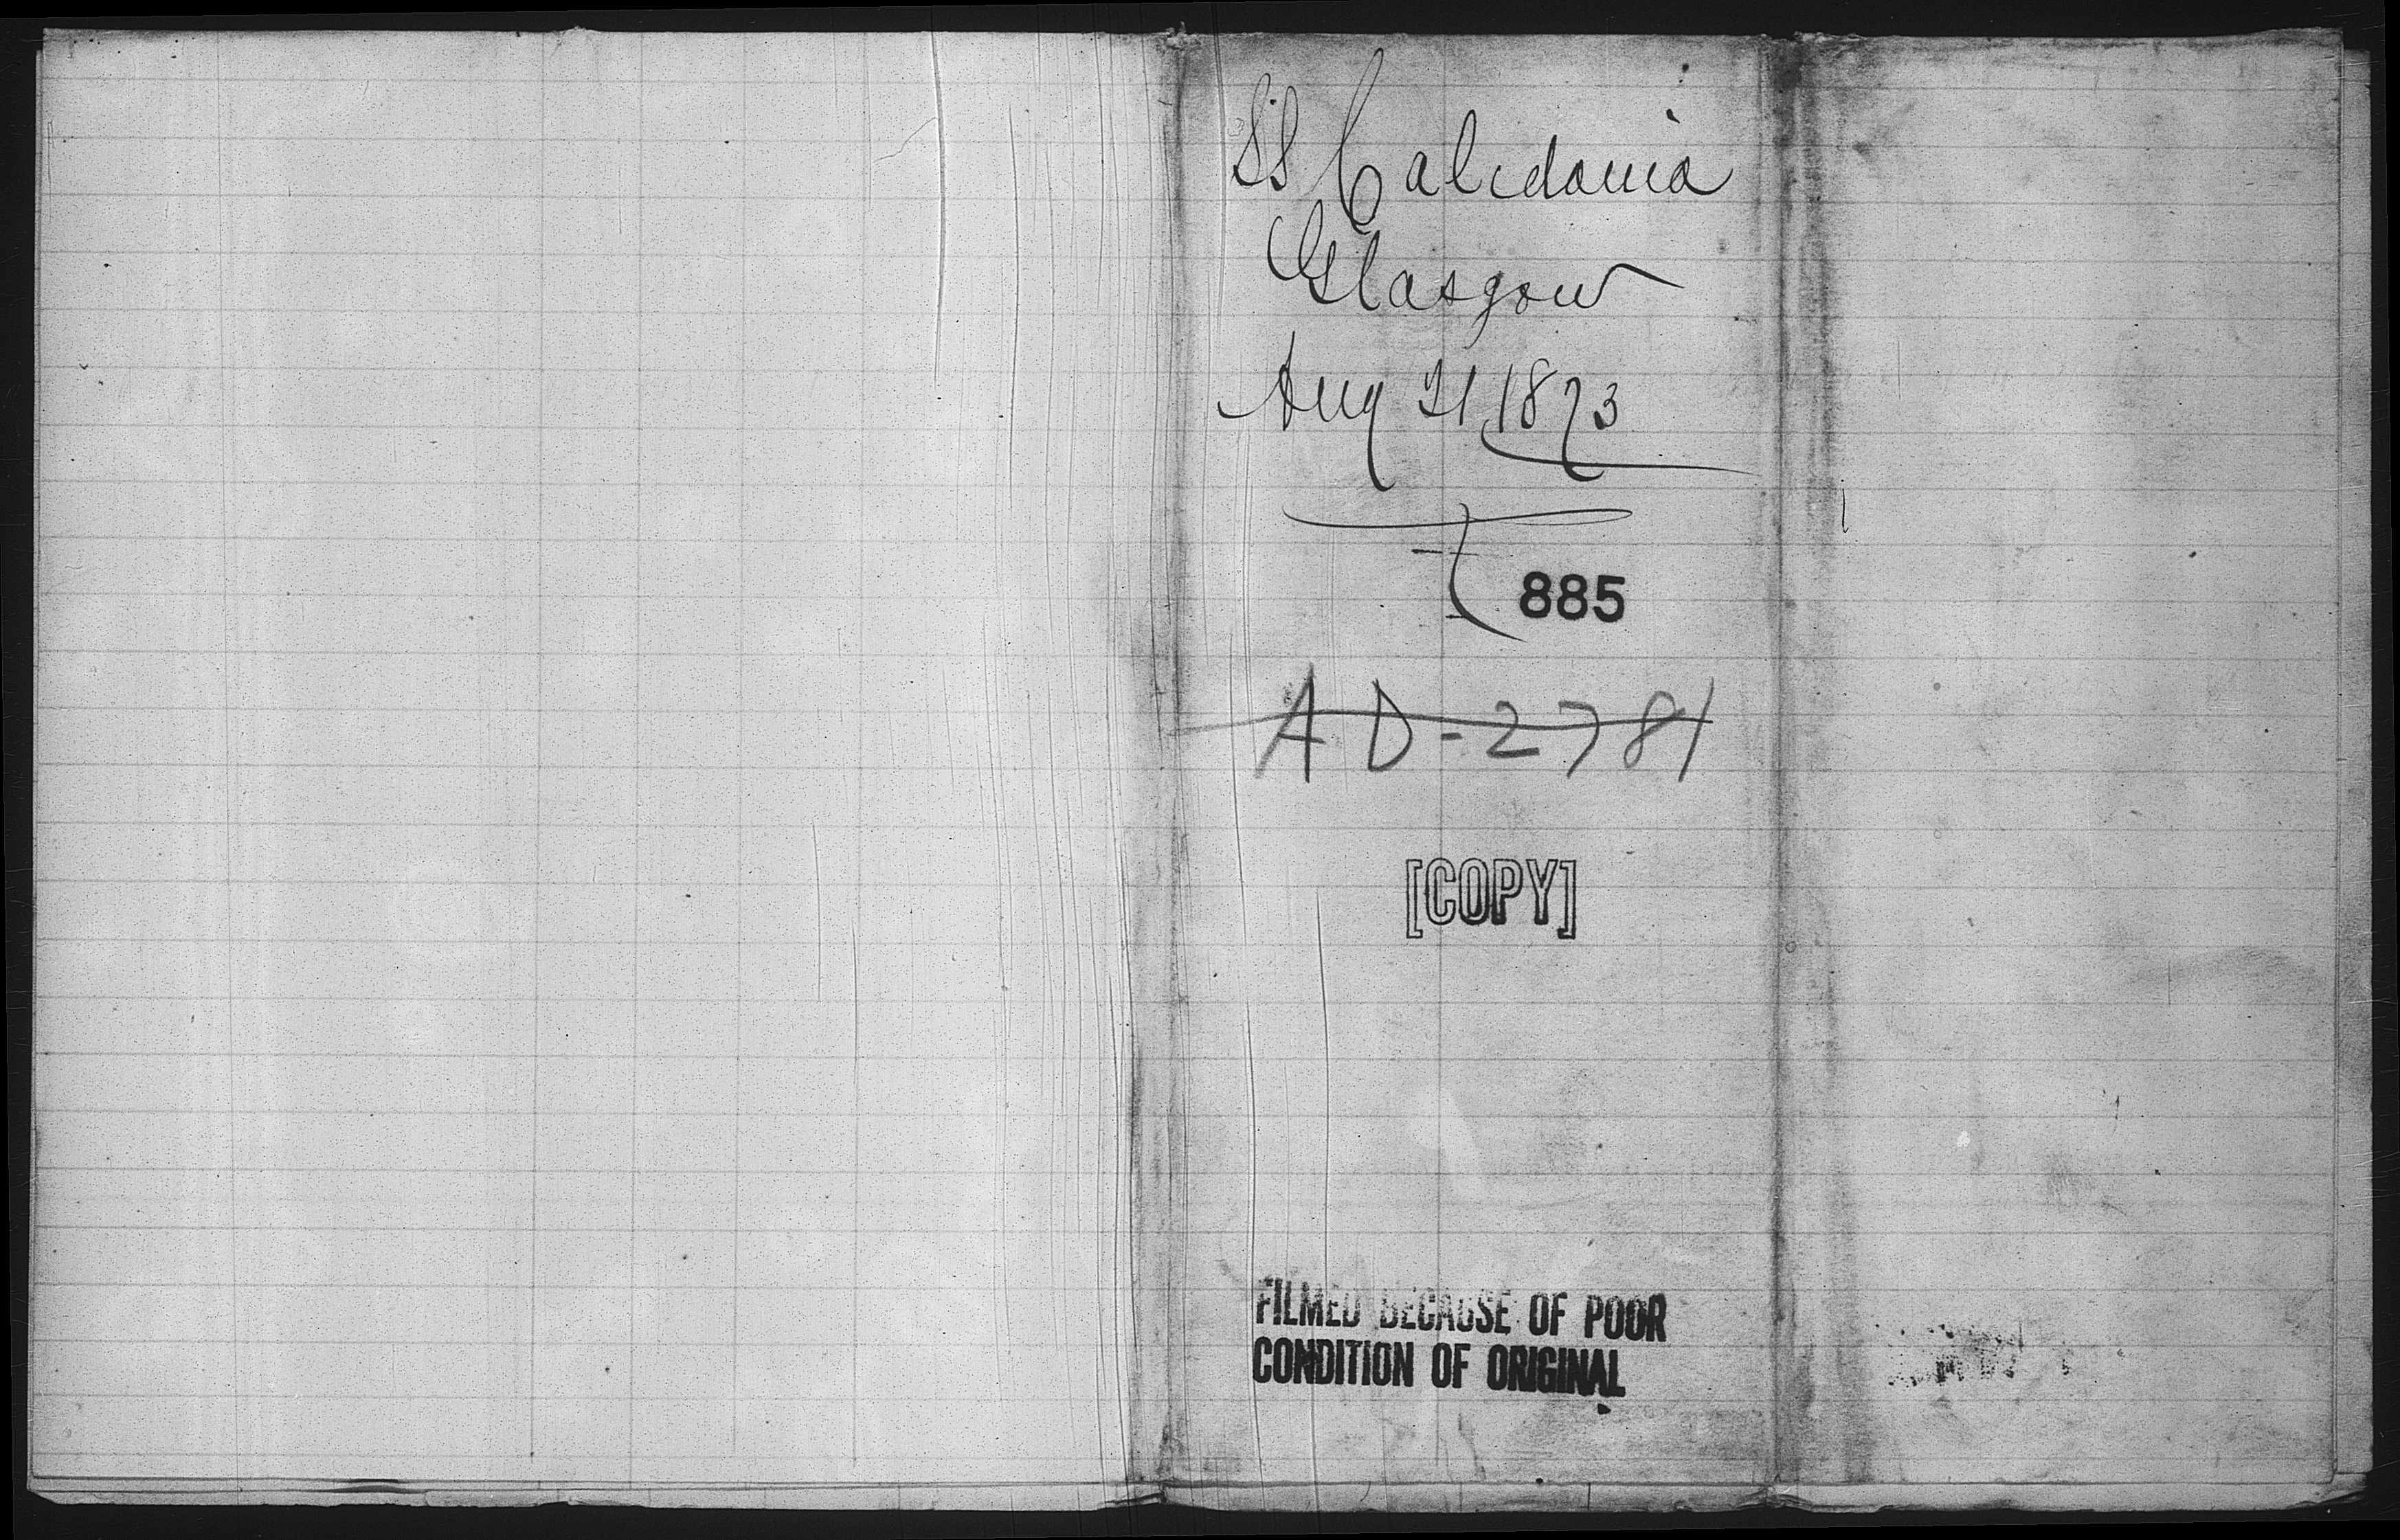 SS Caledonia
Glasgow
Aug 21 1873
885
AD-2781
[COPY]
FILMED BECAUSE OF POOR
CONDITION OF ORIGINAL